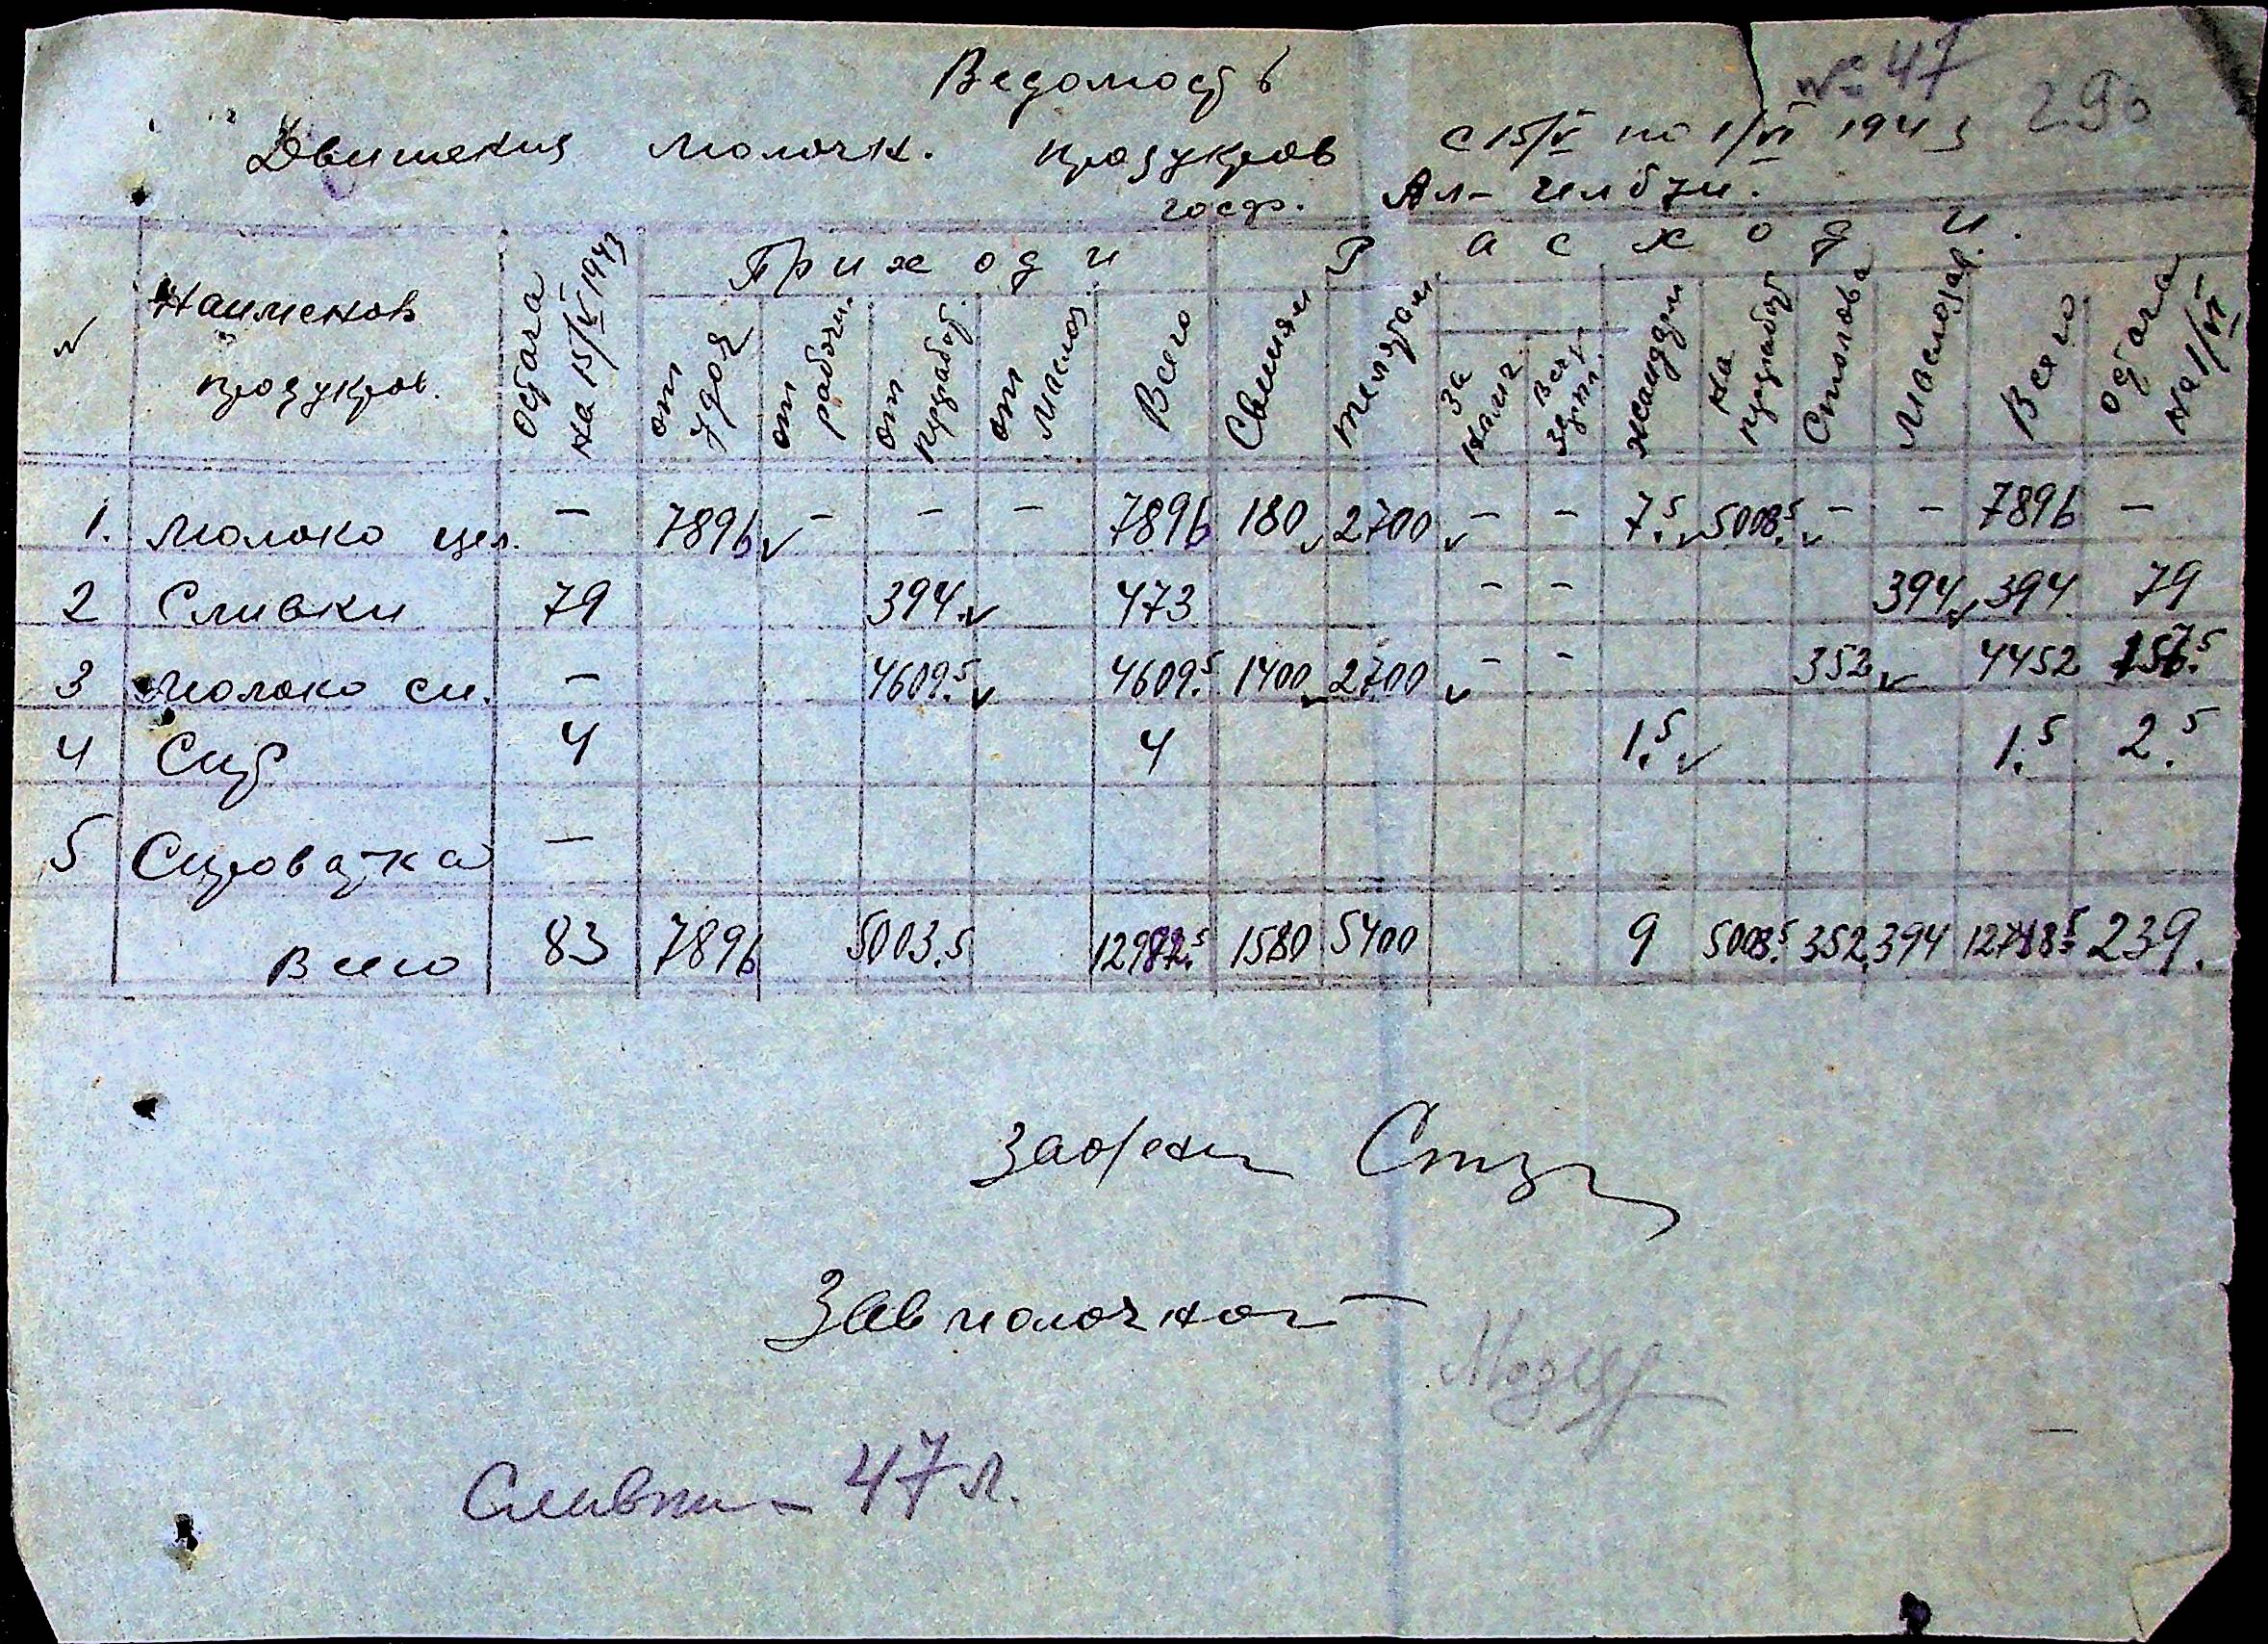 № 47 290
Ведомость
Движения молочн. продуктов с 15/V по 1/VI 1943
госф. Ал-
Приходи Расходи.
№ Наименов продуктов. Остача на 15/V 1943 от удоя от от переработ. от маслоз. Всего Свиням телятам За налич. жандарм на переработ Столова Маслозав. Всего остача на 1/VI
1. Молоко цел. – 7896 – – – 7896 180 2700 – – 7.5 5008.5 – – 7896 –
2 Сливки 79 394 473 – – 394 394 79
3 Молоко сн. – 4609.5 4609.5 1400 2700 – – 352 4452 157.5
4 Сир 4 4 1.5 1.5 2.5
5 Сироватка –
Всего 83 7896 5003.5 12982.5 1580 5400 9 5008.5 352 394 12743.5 239.
Завмолочной
Сливки – 47 л.